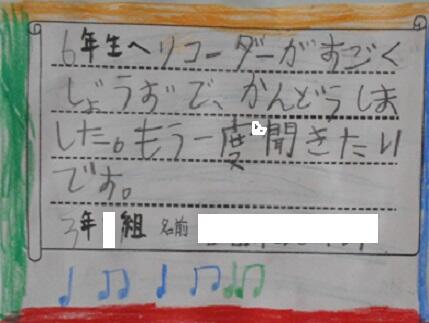 6年生へリコーダーがすごく
じょうずで、かんどうしま
した。もう一度聞きたい
です。
3年 組 名前